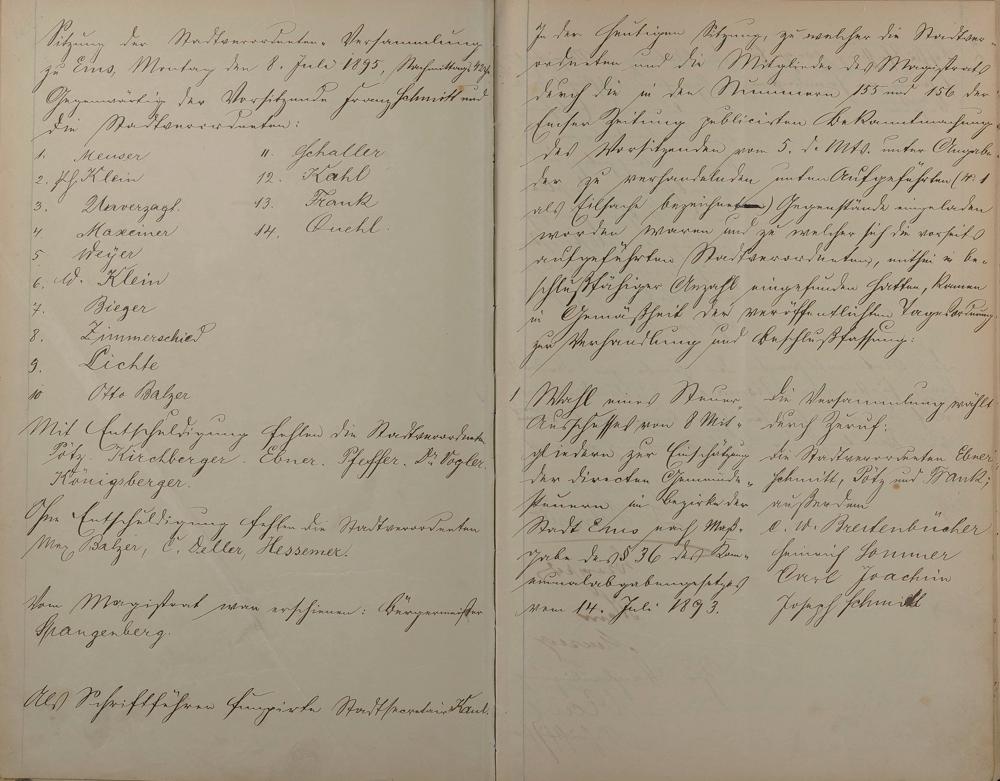 Sitzung der Stadtverordneten-Versammlung
zu Ems, Montag den 8. Juli 1895, Nachmittags
Gegenwärtig der Vorsitzende Franz Schmitt und
die Stadtverordneten:
1. Meuser
2. Ph. Klein
3. Unverzagt.
4 Maxeiner
5 Weyer
6. W. Klein
7. Bieger
8. Zimmerschied
9. Lichte
10 Otto Balzer
11. Schaller
12. Kahl
13. Frank
14. Quehl.
Mit Entschuldigung fehlen die Stadtverordneten
Pötz. Kirchberger. Ebner. Pfeffer. Dr. Vogler.
Königsberger.
Ohne Entschuldigung fehlen die Stadtverordneten
Max Balzer, C. Heller, Hessemer.
Vom Magistrat war erschienen: Bürgermeister
Spangenberg.
Als Schriftführer fungirte Stadtsecretair Kaul.
In der heutigen Sitzung, zu welcher die Stadtver-
ordneten und die Mitglieder des Magistrats
durch die in den Nummern 155 und 156 der
Emser Zeitung publicirten Bekanntmachung
des Vorsitzenden vom 5. d. Mts. unter Angabe
der zu verhandelnden unten Aufgeführten (N: 1
als Eilsache bezeichnet) Gegenstände eingeladen
worden waren und zu welcher sich die vorseits
aufgeführten Stadtverordneten, mithin in be-
schlußfähiger Anzahl eingefunden hatten, kamen
in Gemäßheit der veröffentlichten Tagesordnung
zur Verhandlung und Beschlußfassung:
1 Wahl eines Steuer-
Ausschusses von 8 Mit-
gliedern zur Einschätzung
der directen Gemeinde-
steuern im Bezirke der
Stadt Ems nach Maß-
gabe des § 36 des Kom-
munalabgabengesetzes
vom 14. Juli 1893.
Die Versammlung wählt
durch Zuruf:
die Stadtverordneten Ebner
Schmitt, Pötz und Frank;
außerdem
C. W. Breitenbücher
Heinrich Sommer
Carl Joachim
Joseph Schmitt